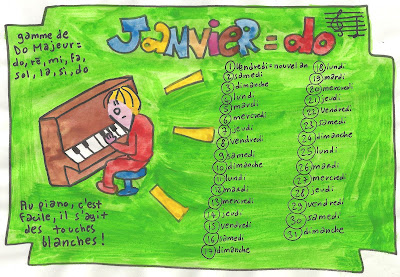 gamme de
Do Majeur =
do, ré, mi, fa,
sol, la, si, do
JANVIER = do
1 vendredi = nouvel an
2 samedi
3 dimanche
4 lundi
5 mardi
6 mercredi
7 jeudi
8 vendredi
9 samedi
10 dimanche
11 lundi
12 mardi
13 mercredi
14 jeudi
15 vendredi
16 samedi
17 dimanche
18 lundi
19 mardi
20 mercredi
21 jeudi
22 vendredi
23 samedi
24 dimanche
25 lundi
26 mardi
27 mercredi
28 jeudi
29 vendredi
30 samedi
31 dimanche
Au piano, c'est
facile, il s'agit
des touches
blanches !